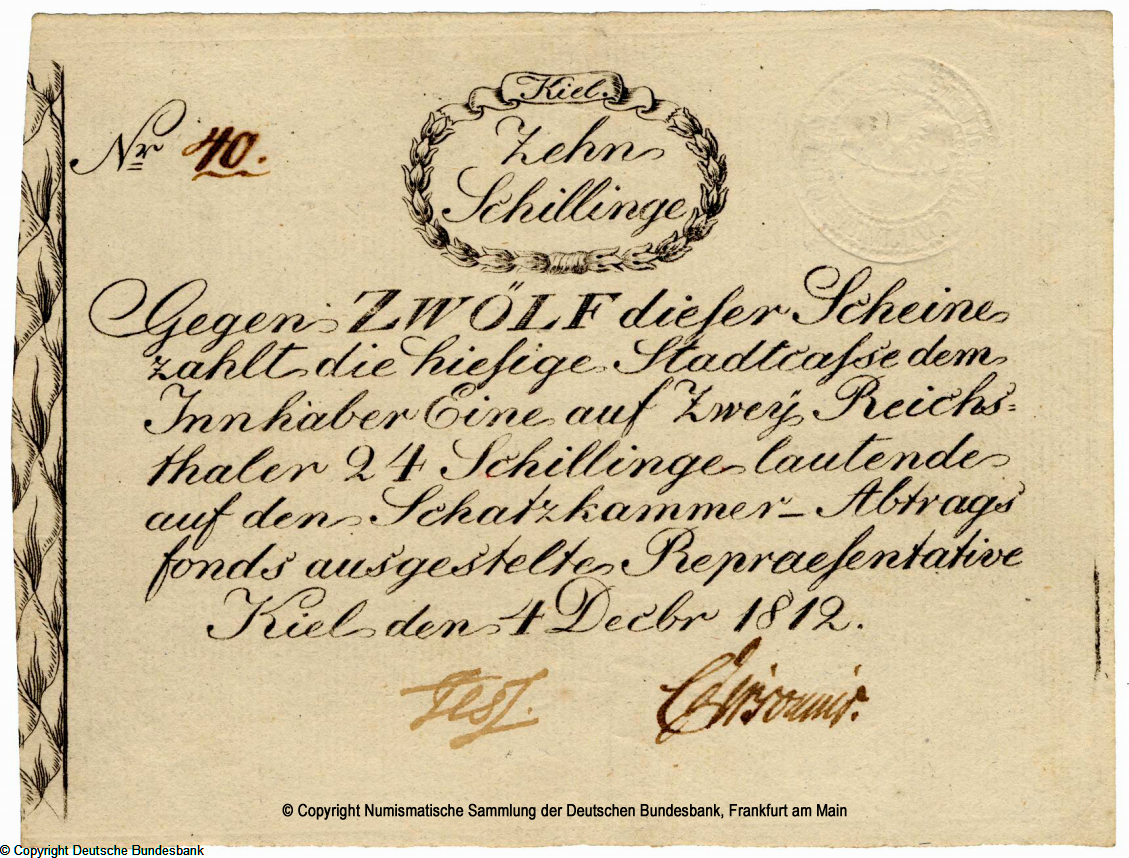 Kiel.
Nr 40.
Zehn
Schillinge
Gegen ZWÖLF dieſer Scheine
zahlt die hieſige Stadtcaſse dem
Innhaber Eine auf Zwey Reichs=
thaler 24 Schillinge lautende
auf den Schatzkammer-Abtrags
fonds ausgestelte Repraeſentative
Kiel den 4 Decbr 1812.
© Copyright Numismatische Sammlung der Deutschen Bundesbank, Frankfurt am Main
© Copyright Deutsche Bundesbank